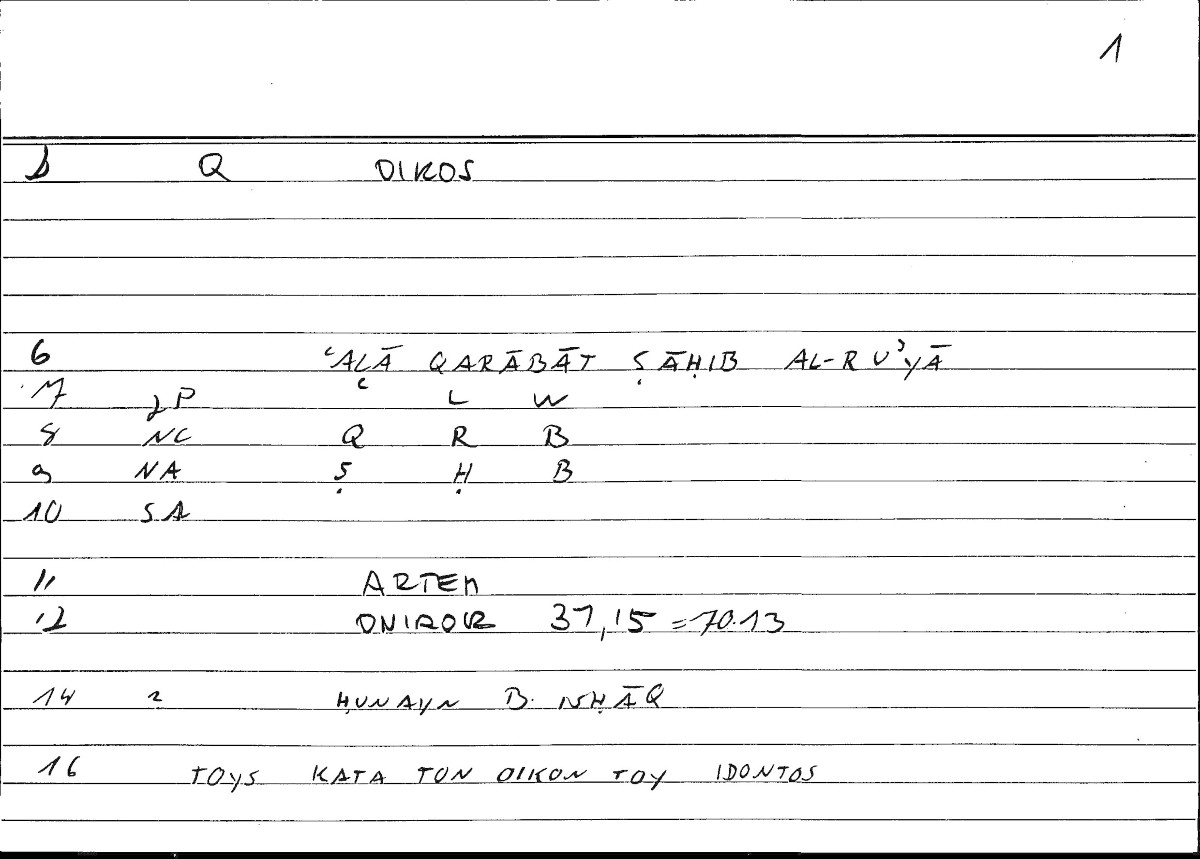 1
Q OIKOS
6 ʿALĀ QARĀBĀT ṢĀḤIB AL-RUʾYĀ
17 JP ʿ L W
8 NC Q R B
9 NA Ṣ Ḥ B
10 SA
11 ARTEM
12 ONIROKR 37,15 = 70.13
14 2 ḤUNAYN B. ISḤĀQ
16 TOYS KATA TON OIKON TOY IDONTOS